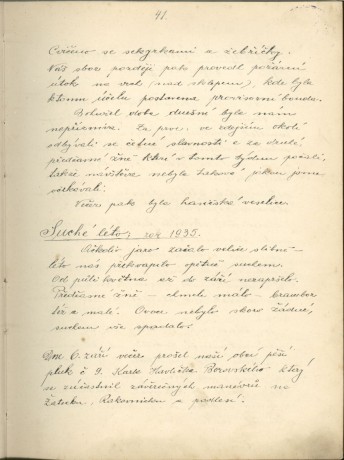 41.
Cvičeno se sekyrkami a žebříčky.
Náš sbor později pak provedl požární
útok na vrch (nad sklepem), kde byla
k tomu účelu postavena provisorní bouda.
Bohužel doba dnešní byla nám
nepříznivá. Za prvé: ve zdejším okolí
odbývali se četné slavnosti a za druhé,
předčasné žně které v tomto týdnu počaly,
takže návštěva nebyla taková jakou jsme
očekávali.
Večer pak byla hasičská veselice.
Suché léto, rok 1935.
Ačkoliv jaro začalo velice slibně –
léto nás překvapilo opětně suchem.
Od půli května až do září nezapršelo.
Předčasné žně – chmele málo – brambor
též a malé. Ovoce nebylo skoro žádné,
suchem vše spadalo.
Dne 6. září večer prošel naší obcí pěší
pluk č 9. Karla Havlíčka Borovského který
se zúčastnil závěrečných manévrů na
Žatecku, Rakovnicku a